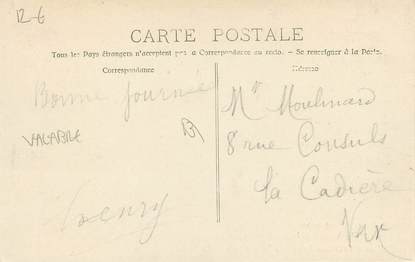 12-6
CARTE POSTALE
Tous les Pays étrangers n'acceptent pas la Correspondance au recto. - Se renseigner à la Poste.
Correspondance
Adresse
Bonne journée
VALABRE
Henry
Mr Moulinard
8 rue Consuls
la Cadière
Var